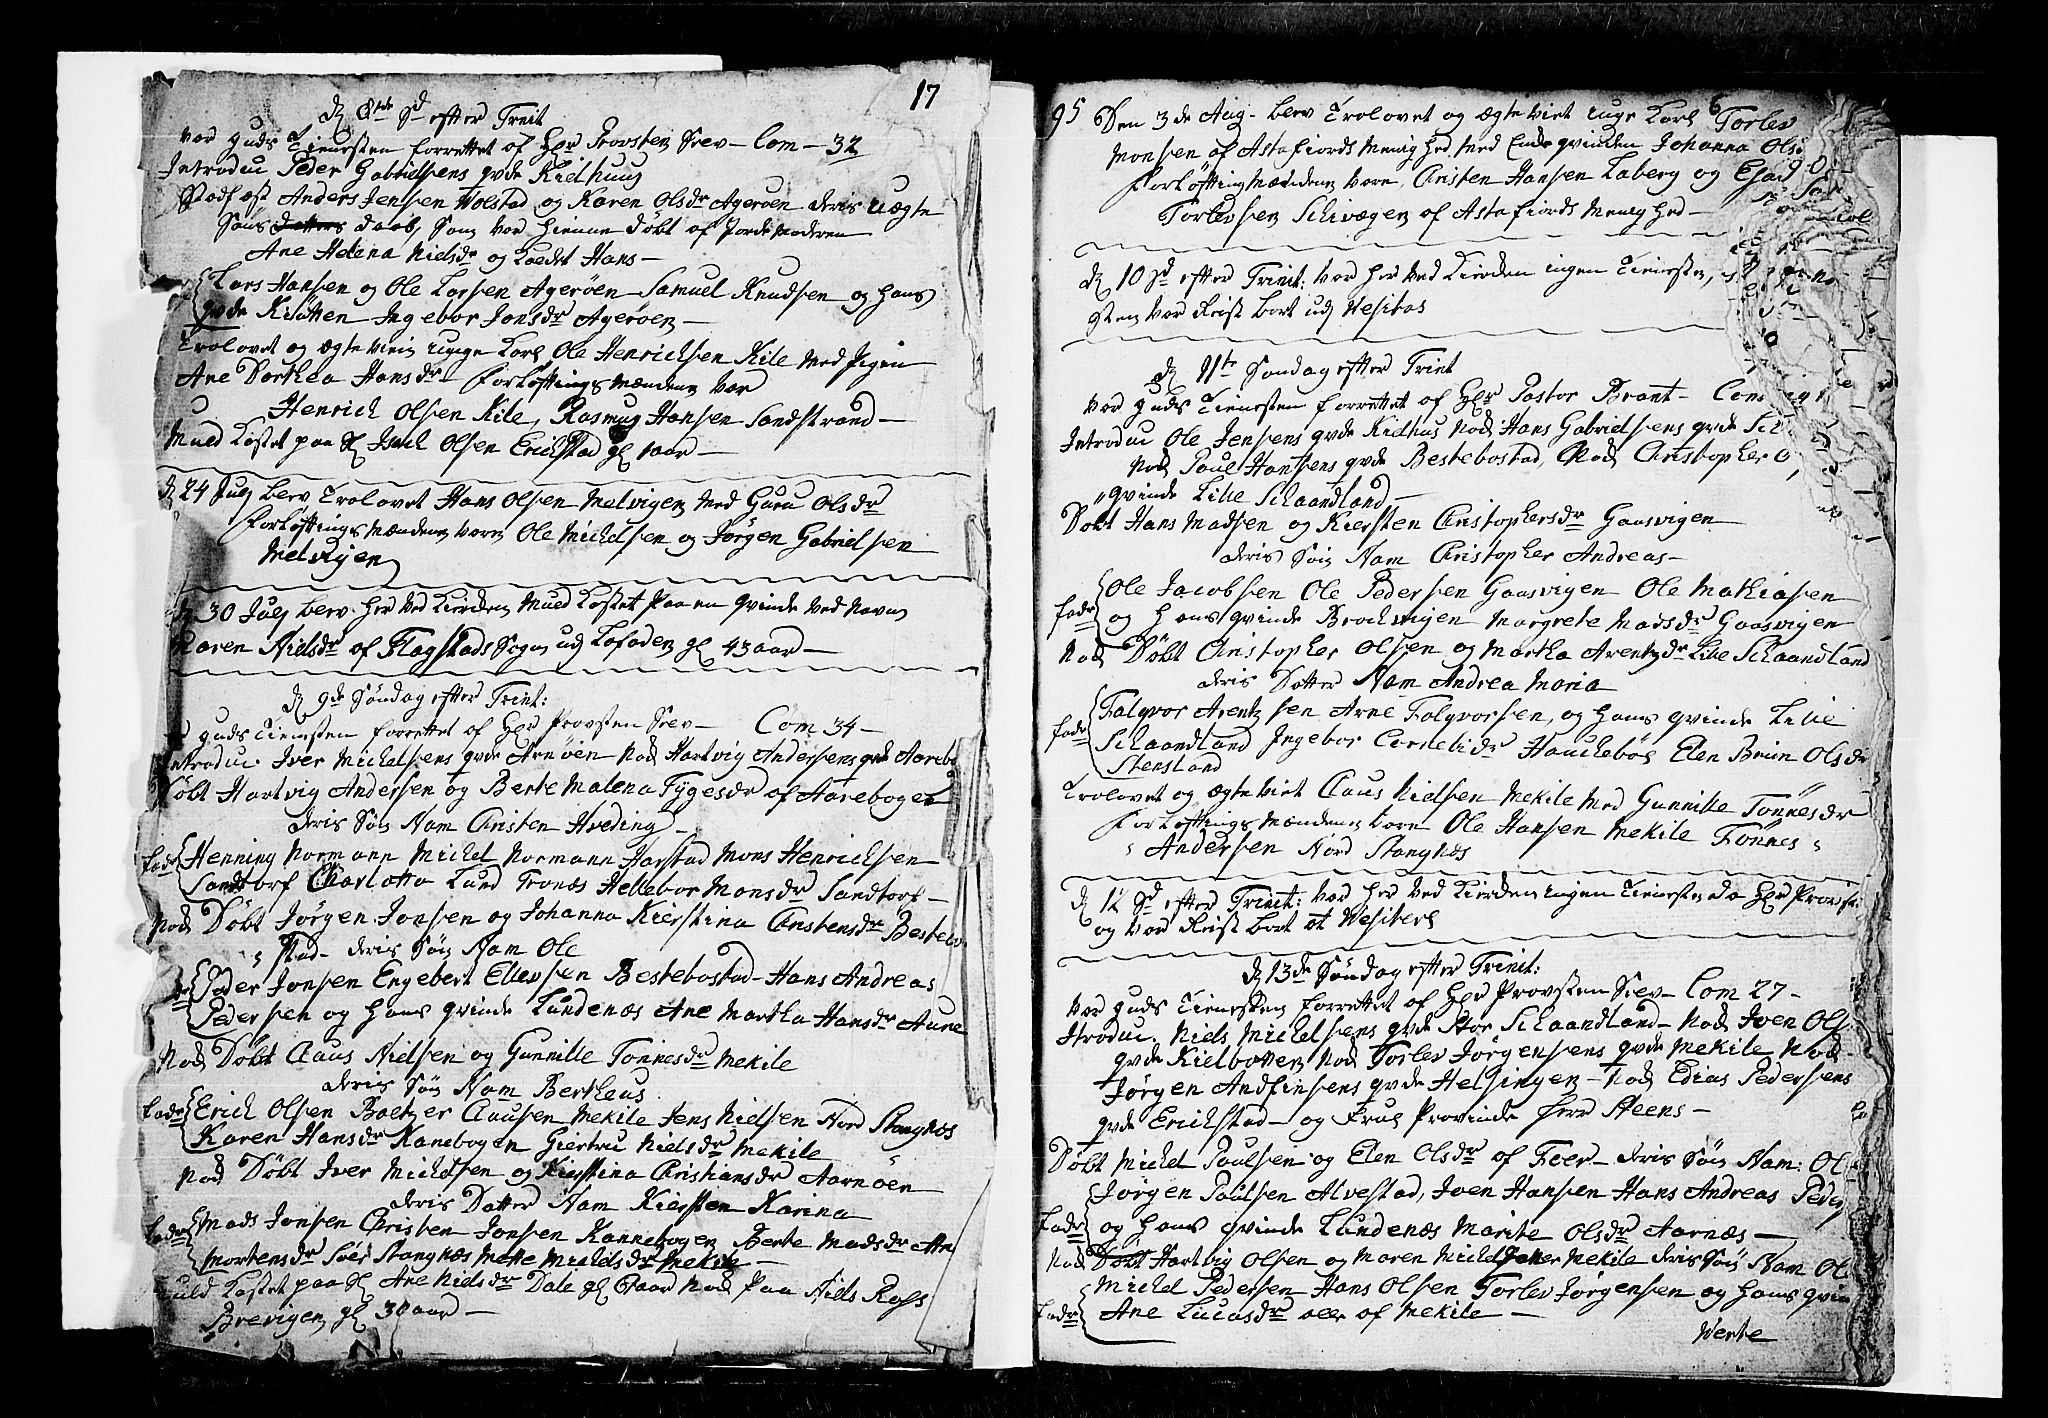 17
D 8de Sd efter Trent
var guds Tienesten forrettet af Hr Provsten Srev - Com - 32
Introduc Peder Gabrielsens qvde Kielhuus
Stadfæst Anders Jensen Wolstad og Karen Olsdr Agerøen deris uægte
Søns Datters daab, som var hiemme døbt af Jordemoderen
Ane Helena Nielsdr og kaldet Hans -
Lars Hansen og Ole Larsen Agerøen Samuel Knudsen og hans
qvde Ingebor Jonsdr Agerøen -
Trolovet og ægteviet unge Karl Ole Henrichsen Kile med Pigen
Ane Dorthea Hansdr Forløftings Mændene var
Henrich Olsen Kile, Rasmus Hansen Sandstrand -
Muld kastet paa Olsen Erichstad gl 1 aar -
D 24 July blev Trolovet Hans Olsen Melvigen med Guru Olsdr
Forløftings Mændene vare Ole Michelsen og Jørgen Gabrielsen
Melvigen
D 30 July blev her ved Kirken Muld kastet paa en qvinde ved navn
Karen Nielsdr af Flagstads Sogn ud Lofoden gl 43 aar -
D 9de Søndag efter Trint:
guds Tienesten forrettet af Hr Provsten Srev - Com 34 -
Introduc. Iver Michelsens qvde Arnøen Nok Hartvig Andersens qvde Aarebo
Døbt Hartvig Andersen og Berte Malena Tygesdr af Aarebogen
deris Søn Nam Christen Hveding -
fadr Henning Normann Michel Normann Harstad Mons Henrichsen
Sandtorf Charlotta Lund Tronæs Hellebor Monsdr Sandtorf -
Nok Døbt Jørgen Jonsen og Johanna Kierstina Christensdr Bestebo
" stad - deris Søn Nam Ole
Peder Jonsen Engebert Ellevsen Bestebostad - Hans Andreas
Pedersen og hans qvinde Lundenæs Ane Martha Hansdr Aune
Nok Døbt Claus Nielsen og Gunnille Tønnesdr Mekile
deris Søn Nam Bertheus
fadr Erich Olsen Baltzer Clausen Mekile Jens Nielsen Nord Stangnæs
Karen Hansdr Kanebogen Giertru Nielsdr Mekile
Nok Døbt Iver Michelsen og Kirstina Christiansdr Aarnøen
deris Datter Nam Kiersten Karina
fadr Mads Jonsen Christen Jonsen Kannebogen Berte Madsdr Ane
Mortensdr Sør Stangnæs Mette Michelsdr Mekile -
Muld kastet paa Ane Nielsdr Dale gl aar Nok paa Niels Ross
Brevigen gl 30 aar -
95 Den 3de Aug - blev Trolovet og ægteviet unge Karl Torlev
Monsen af Astafiords Menighed med Enke qvinden Johanna Ols
Forløftingsmændene vare, Christen Hansen Laberg og
Torlevsen af Astafiords Menighed -
D 10 Sd efter Trinit: var her ved Kirken ingen Tieneste,
var Reist bort ud Vesitas
D 11te Søndag efter Trint
var guds Tienesten forrettet af Hr Pastor Brant - Com
Introduc Ole Jensens qvde Kielhus Nok Hans Gabrielsens qvde
Nok Poul Hansens qvde Bestebostad, Nok Christopher O
" qvinde Lille Schaandland -
Døbt Hans Madsen og Kiersten Christophersdr Gaasvigen
deris Søn Nam Christopher Andreas -
fadr Ole Jacobsen Ole Pedersen Gaasvigen Ole Mathiasen
og hans qvinde Brochvigen Margrete Madsdr Gaasvigen
Nok Døbt Christopher Olsen og Martha Arentzdr Lille Schaandland
deris Datter Nam Andrea Maria
fadr Falqvor Arentzsen Arne Falqvorsen, og hans qvinde Lille
Schaandland Ingebor Cornelidr Hauchebøe Elen Brun Olsdr
Stensland
Trolovet og ægteviet Claus Nielsen Mekile med Gunnille Tønnesdr
Forløftings Mændene vare Ole Hansen Mekile Tønnes "
" Andersen Nord Stangnæs
D 12 Sd efter Trinit: var her ved Kirken ingen Tieneste da Hr Provst
og var Reist bort at Vesitere
D 13de Søndag efter Trinit:
var guds Tienesten forrettet af Hr Provsten Srev - Com 27 -
Introduc Niels Michelsens qvde Stor Schaandland - Nok Iven Ols
qvde Kielbotten Nok Torlev Jørgensens qvde Mekile Nok
Jørgen Andfinsens qvde Helsingen - Nok Edias Pedersens
qvde Erichstad - og Frue Provinde Steens -
Døbt Michel Paulsen og Elen Olsdr af - deris Søn Nam: Ol
Jørgen Paulsen Alvestad, Iven Hansen Hans Andreas Peder
fadr og hans qvinde Lundenæs Marite Olsdr Aarnæs -
Nok Døbt Hartvig Olsen og Maren Mekile deris Søn Nam Ol
Michel Pedersen Hans Olsen Torlev Jørgensen og hans qvin
fadr Ane Lucasdr alle af Mekile -
Verte